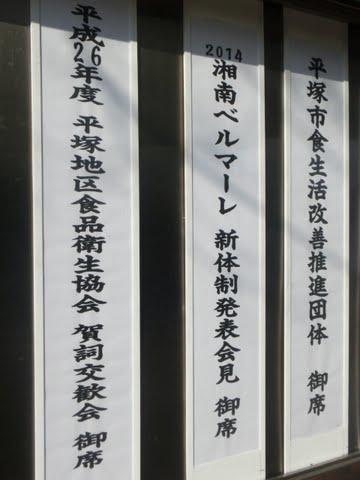 平塚市食生活改善推進団体 御席
2014
湘南ベルマーレ 新体制発表会見 御席
平成26年度 平塚地区食品衛生協会 賀詞交歓会 御席